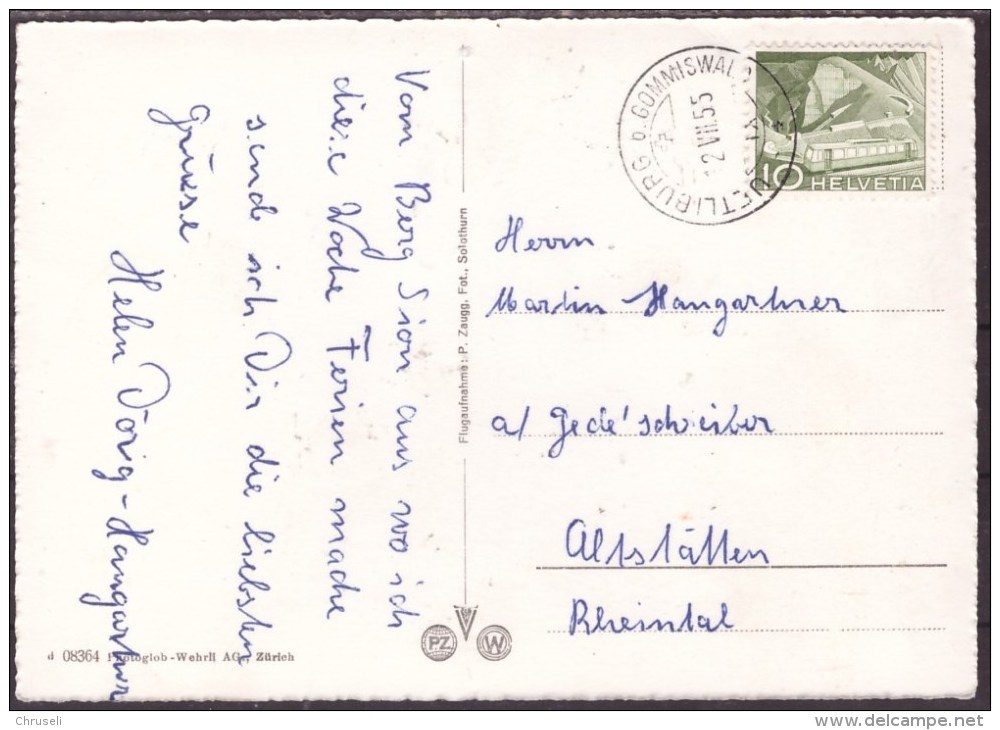 Vom Berg Sion aus wo ich
diese Woche Ferien mache
sende ich Dir die liebsten
Grüsse
Helen Dörig-Hangartner
Flugaufnahme: P. Zaugg. Fot., Solothurn
UETLIBURG b. GOMMISWALD
2 VIII 55
10 HELVETIA
Herrn
Martin Hangartner
a/ Gede'schreiber
Altstätten
Rheintal
PZ
W
d 08364 Photoglob-Wehrli AG., Zürich
Chruseli
delcampe.net